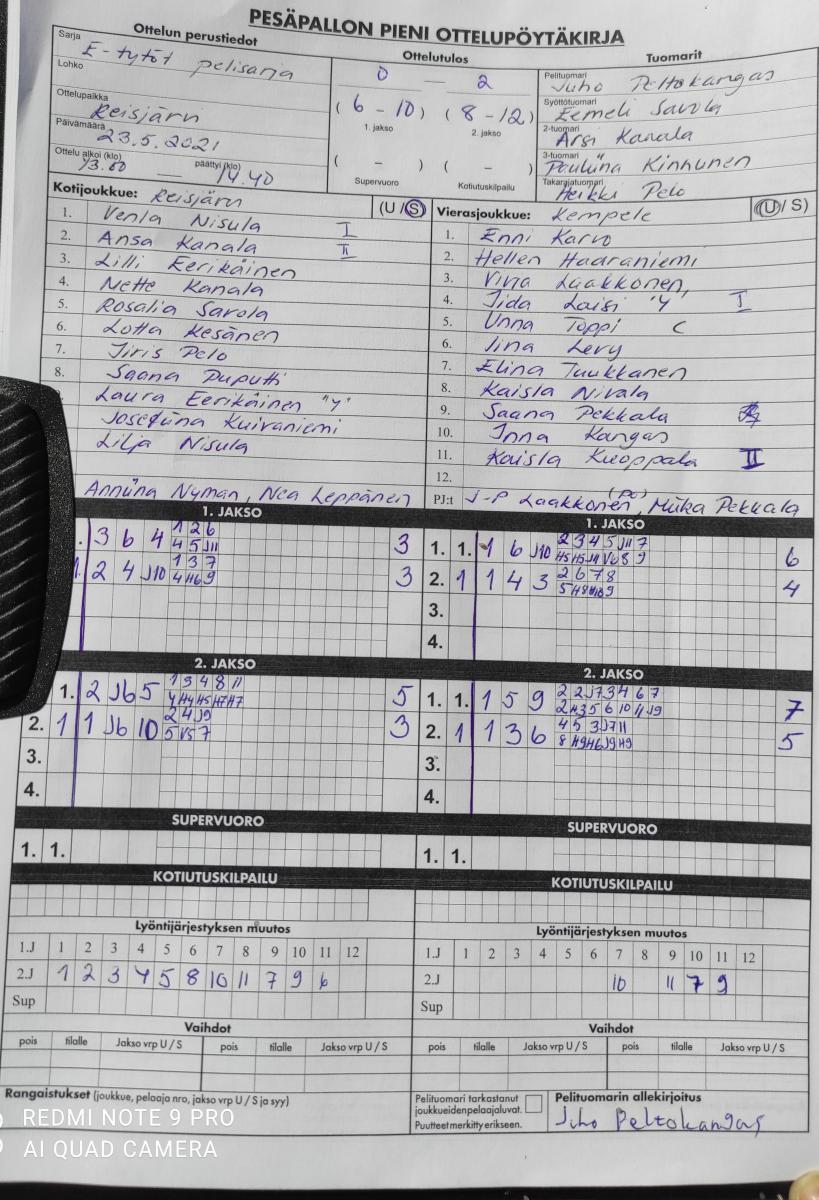 PESÄPALLON PIENI OTTELUPÖYTÄKIRJA
Ottelun perustiedot
Sarja E-tytöt pelisarja
Lohko
Ottelupaikka Reisjärvi
Päivämäärä 23.5.2021
Ottelu alkoi (klo) 13.00 — päättyi (klo) 14.40
Ottelutulos
0 — 2
(6 - 10) (8 - 12)
1. jakso 2. jakso
( - ) ( - )
Supervuoro Kotiutuskilpailu
Tuomarit
Pelituomari Juho Peltokangas
Syöttötuomari Eemeli Savola
2-tuomari Arsi Kanala
3-tuomari Pauliina Kinnunen
Takarajatuomari Heikki Pelo
Kotijoukkue: Reisjärvi (U / S)
1. Venla Nisula I
2. Ansa Kanala II
3. Lilli Eerikäinen
4. Nette Kanala
5. Rosalia Savola
6. Lotta Kesänen
7. Iiris Pelo
8. Saana Puputti
Laura Eerikäinen "Y"
Josefiina Kuivaniemi
Lilja Nisula
Anniina Nyman, Nea Leppänen
Vierasjoukkue: Kempele (U / S)
1. Enni Karvo
2. Hellen Haaraniemi
3. Viva Laakkonen
4. Iida Laisi "Y" I
5. Unna Toppi C
6. Iina Levy
7. Elina Tuukkanen
8. Kaisla Nivala
9. Saana Pekkala
10. Inna Kangas
11. Kaisla Kuoppala II
12.
PJ:t J-P Laakkonen (PJ), Miika Pekkala
1. JAKSO
3 6 4 1 2 6
4 5 J11
3
2 4 J10 1 3 7
4 H6 9
3
1. JAKSO
1. 1. 1 6 J10 2 3 4 5 J11 7
H5 H5 J11 V6 8 9
6
2. 1 1 4 3 2 6 7 8
4
3.
4.
2. JAKSO
1. 2 J6 5 1 3 4 8 11
Y H4 H5 H7 H7
5
2. 1 1 J6 10 2 4 J9
5 V5 7
3
3.
4.
2. JAKSO
1. 1. 1 5 9 2 2 J7 3 4 6 7
7
2. 1 1 3 6 4 5 3 J7 11
8 H9 H6 J9 H9
5
3.
4.
SUPERVUORO
1. 1.
SUPERVUORO
1. 1.
KOTIUTUSKILPAILU
KOTIUTUSKILPAILU
Lyöntijärjestyksen muutos
1.J 1 2 3 4 5 6 7 8 9 10 11 12
2.J 1 2 3 4 5 8 10 11 7 9 6
Sup
Lyöntijärjestyksen muutos
1.J 1 2 3 4 5 6 7 8 9 10 11 12
2.J 10 11 7 9
Sup
Vaihdot
pois tilalle Jakso vrp U / S pois tilalle Jakso vrp U / S
Vaihdot
pois tilalle Jakso vrp U / S pois tilalle Jakso vrp U / S
Rangaistukset (joukkue, pelaaja nro, jakso vrp U / S ja syy)
Pelituomari tarkastanut
joukkueiden pelaajaluvat.
Puutteet merkitty erikseen.
Pelituomarin allekirjoitus
Juho Peltokangas
REDMI NOTE 9 PRO
AI QUAD CAMERA